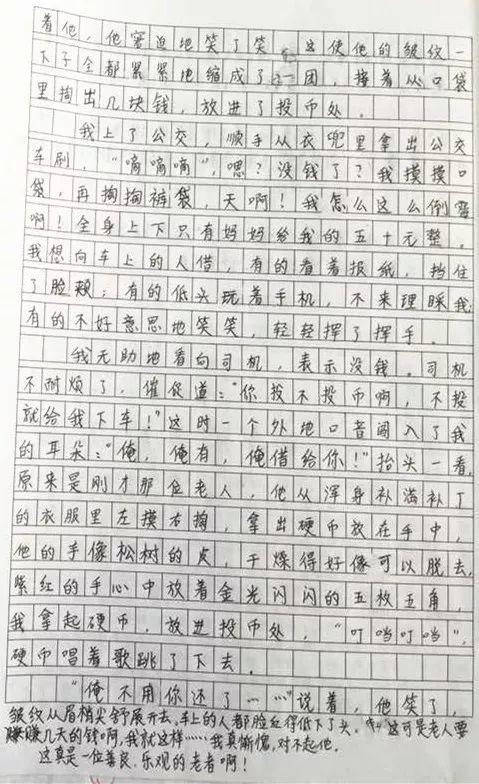 着他，他窘迫地笑了笑。这使他的皱纹一
下子全都紧紧地缩成了一团，接着从口袋
里掏出几块钱，放进了投币处。
我上了公交，顺手从衣兜里拿出公交
车刷，“嘀嘀嘀”，嗯？没钱了？我摸摸口
袋，再掏掏裤袋，天啊！我怎么这么倒霉
啊！全身上下只有妈妈给我的五十元整。
我想向车上的人借，有的看着报纸，挡住
了脸颊；有的低头玩着手机，不来理睬我；
有的不好意思地笑笑，轻轻挥了挥手。
我无助地看向司机，表示没钱。司机
不耐烦了，催促道：“你投不投币啊，不投
就给我下车！”这时一个外地口音闯入了我
的耳朵：“俺，俺有，俺借给你！”抬头一看，
原来是刚才那位老人，他从浑身补满补丁
的衣服里左摸右掏，拿出硬币放在手中，
他的手像松树的皮，干燥得好像可以脱去，
紫红的手心中放着金光闪闪的五枚五角，
我拿起硬币，放进投币处，“叮当叮当”，
硬币唱着歌跳了下去。
“俺不用你还了……”说着，他笑了，
皱纹从眉梢尖舒展开去，车上的人都脸红得低下了头。这可是老人要
赚几天的钱啊，我就这样……我真惭愧，对不起他。
这真是一位善良、乐观的老者啊！